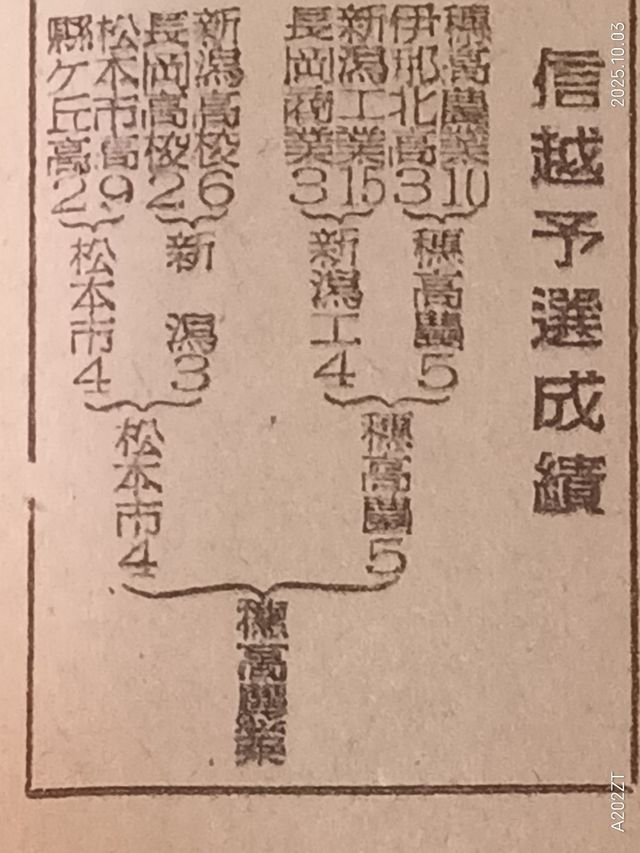 信越予選成績
穂高農業10
伊那北高3
新潟工業15
長岡商業3
新潟高校6
長岡高校2
松本市高9
縣ケ丘高2
穂高農5
新潟工4
新潟3
松本市4
穂高農5
松本市4
穂高農業
2025.10.03
A202ZT